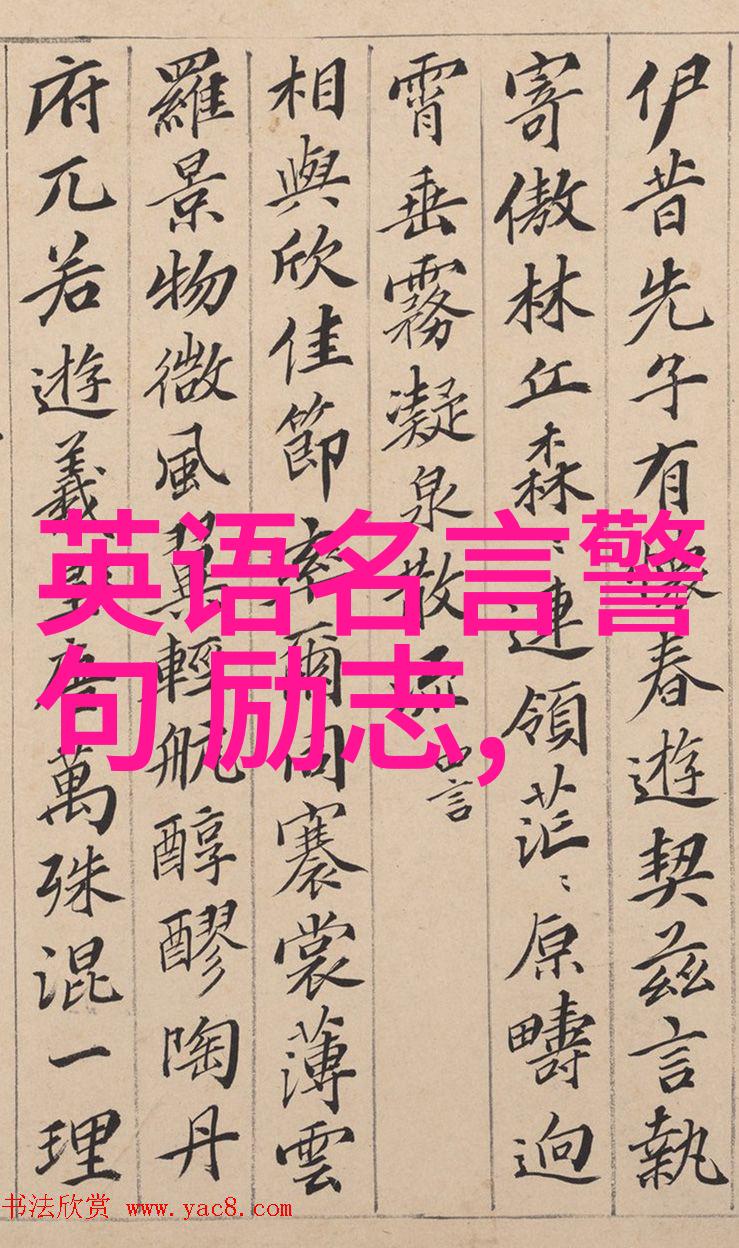 伊昔先子有懷春遊契茲言執
寄傲林丘森〻連領茫〻原疇迥
霄垂霧凝泉散流
言
相與欣佳節率爾同褰裳薄雲
羅景物微風翼輕航醇醪陶丹
府兀若遊羲唐萬殊混一理
英语名言警
句励志,
书法欣赏 www.yac8.com